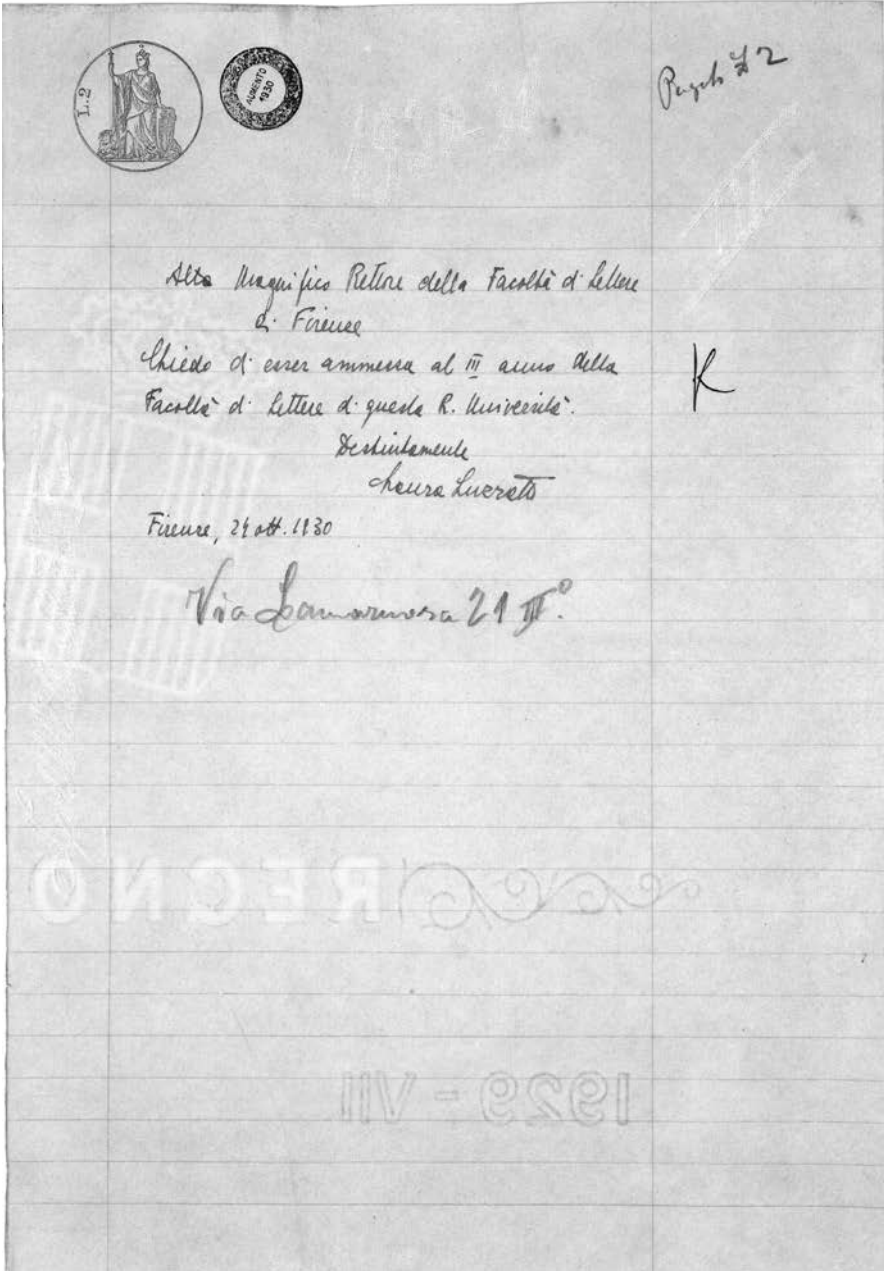 L.2
AUMENTO
1930
£ 2
Alto Magnifico Rettore della Facoltà di Lettere
di Firenze
Chiedo di esser ammessa al III anno della
Facoltà di Lettere di questa R. Università.
Distintamente
Laura
Firenze, 24 ott. 1930
Via Lamarmora 21 III°.
K
REGNO
1929 - VII